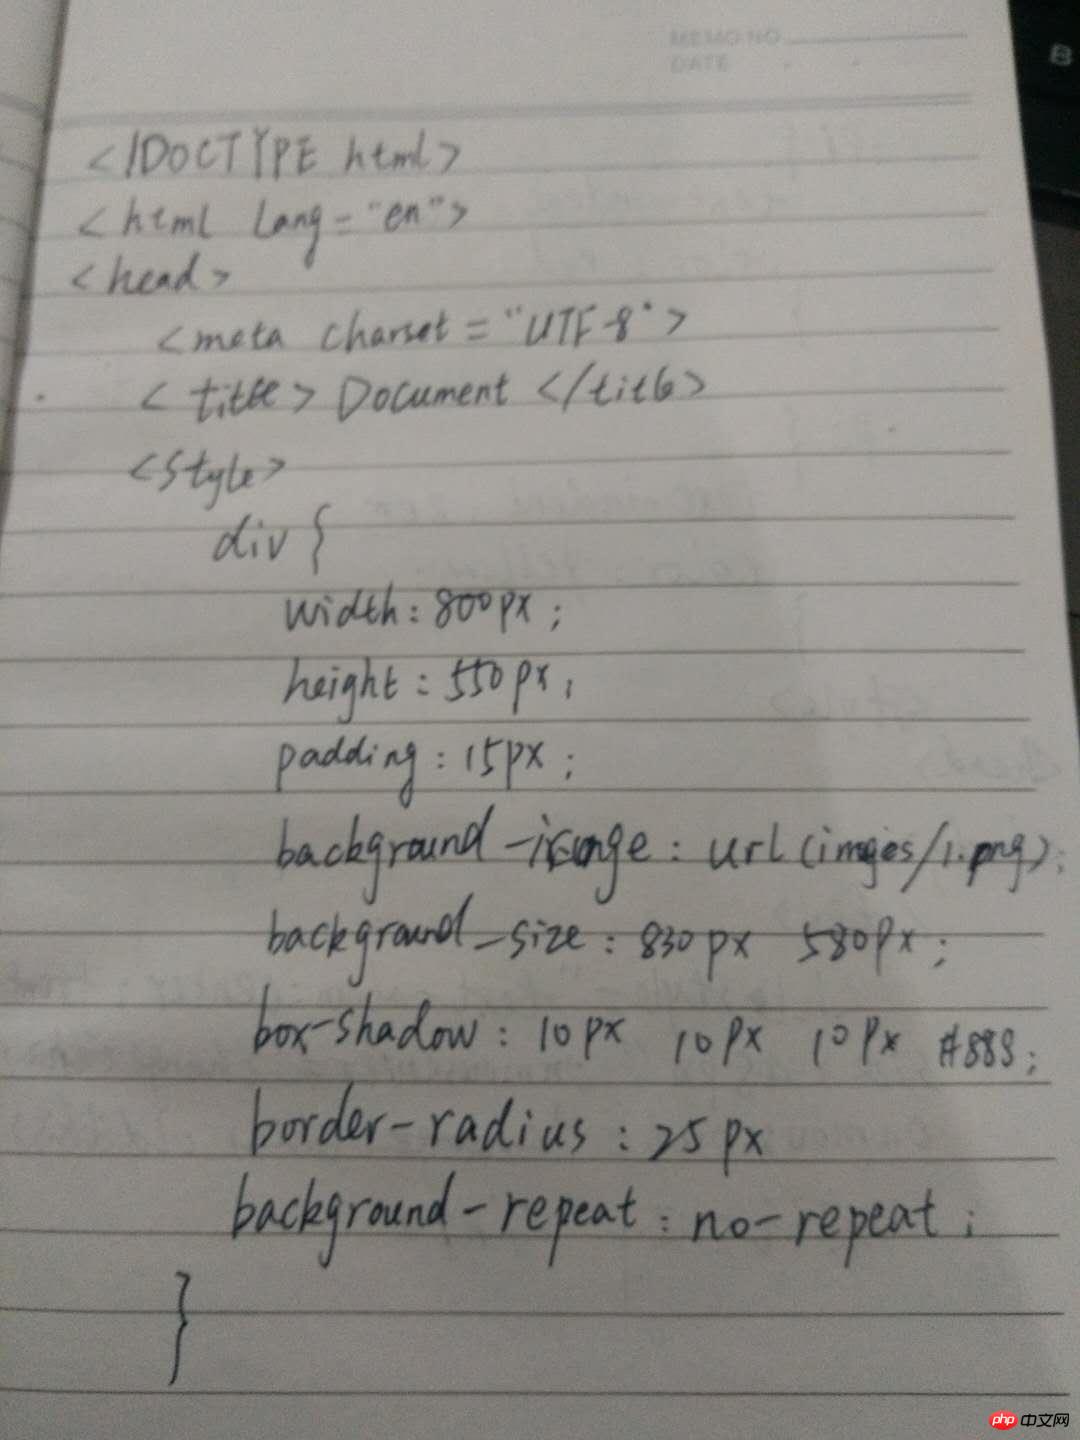 MEMO NO
DATE
B
<!DOCTYPE html>
<html lang="en">
<head>
<meta charset="UTF-8">
<title>Document</title>
<style>
div {
width: 800px;
height: 550px;
padding: 15px;
background-image: url(images/1.png);
background-size: 830px 580px;
box-shadow: 10px 10px 10px #888;
border-radius: 25px
background-repeat: no-repeat;
}
php 中文网